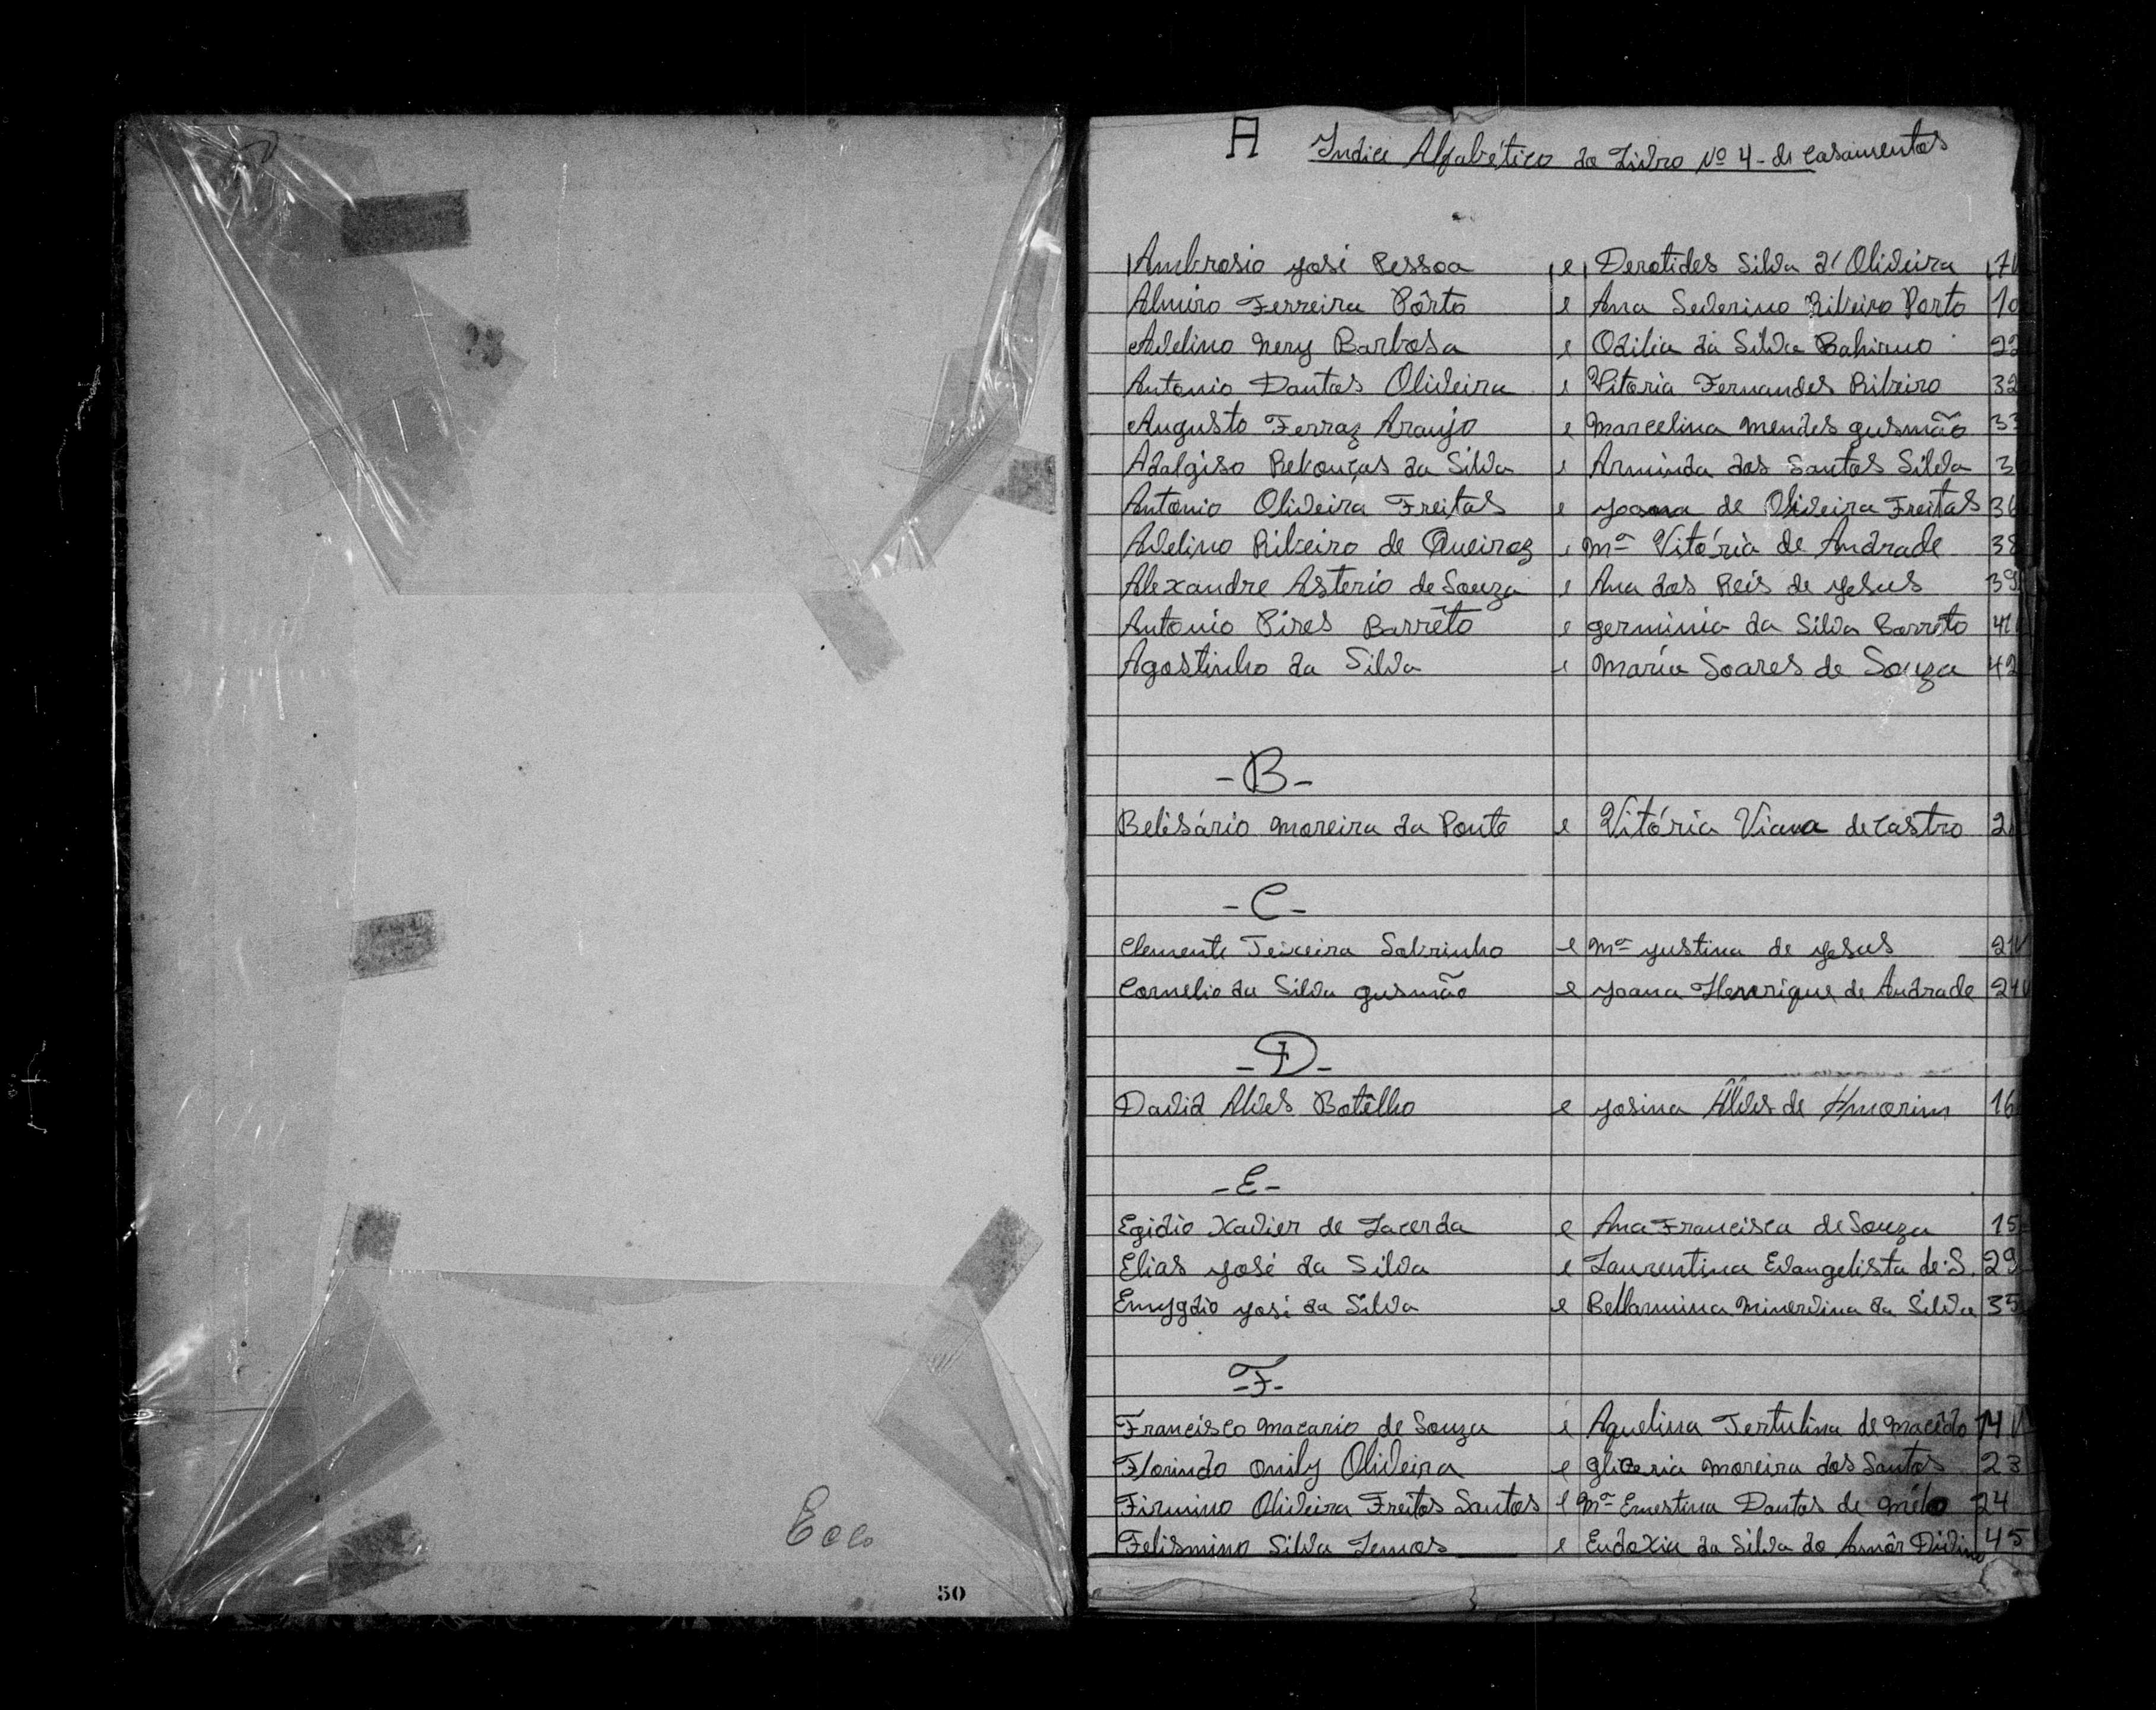 50
A Indice Alfabético do Livro Nº 4 - de Casamentos
Ambrosio José Pessoa e Derotides Silva d'Oliveira 7v
Almiro Ferreira Pôrto e Ana Severino Ribeiro Porto 10
Avelino Nery Barbosa e Odilia da Silva 22
Antonio Dantas Oliveira e Vitoria Fernandes Ribeiro 32
Augusto Ferraz Araujo e Marcelina Mendes Gusmão 33
Adalgiso Rebouças da Silva e Arminda dos Santos Silva
Antonio Oliveira Freitas e Joana de Oliveira Freitas 36
Avelino Ribeiro de Queiroz e Mª Vitória de Andrade 38
Alexandre Asterio de Souza e Ana dos Reis de Jesus 39
Antonio Pires Barrêto e Germinia da Silva Barreto 41
Agostinho da Silva e Maria Soares de Souza 42
- B -
Belisário Moreira da Ponte e Vitória Viana de Castro
- C -
Clemente Teixeira Sobrinho e Mª Justina de Jesus
Cornelio da Silva Gusmão e Joana Henrique de Andrade
- D -
David Alves Botêlho e Josina Alves de Amorim 16
- E -
Egidio Xavier de Lacerda e Ana Francisca de Souza 15
Elias José da Silva e Laurentina Evangelista de S. 29
Emygdio José da Silva e Bellarmina Minervina da Silva 35
- F -
Francisco Macario de Souza e Aquelina Tertulina de Macêdo 14v
Florindo Oliveira e Gliceria Moreira dos Santos 23
Firmino Oliveira Freitas Santos e Mª Ernestina Dantas de Mélo 24
Felismino Silva Lemos e Eudoxia da Silva do Amôr Divino 45